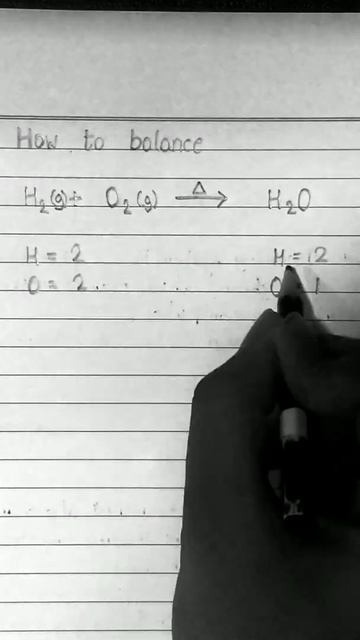 How to balance
H₂(g)+ O₂(g) —Δ→ H₂O
H = 2 H = 2
O = 2 O 1